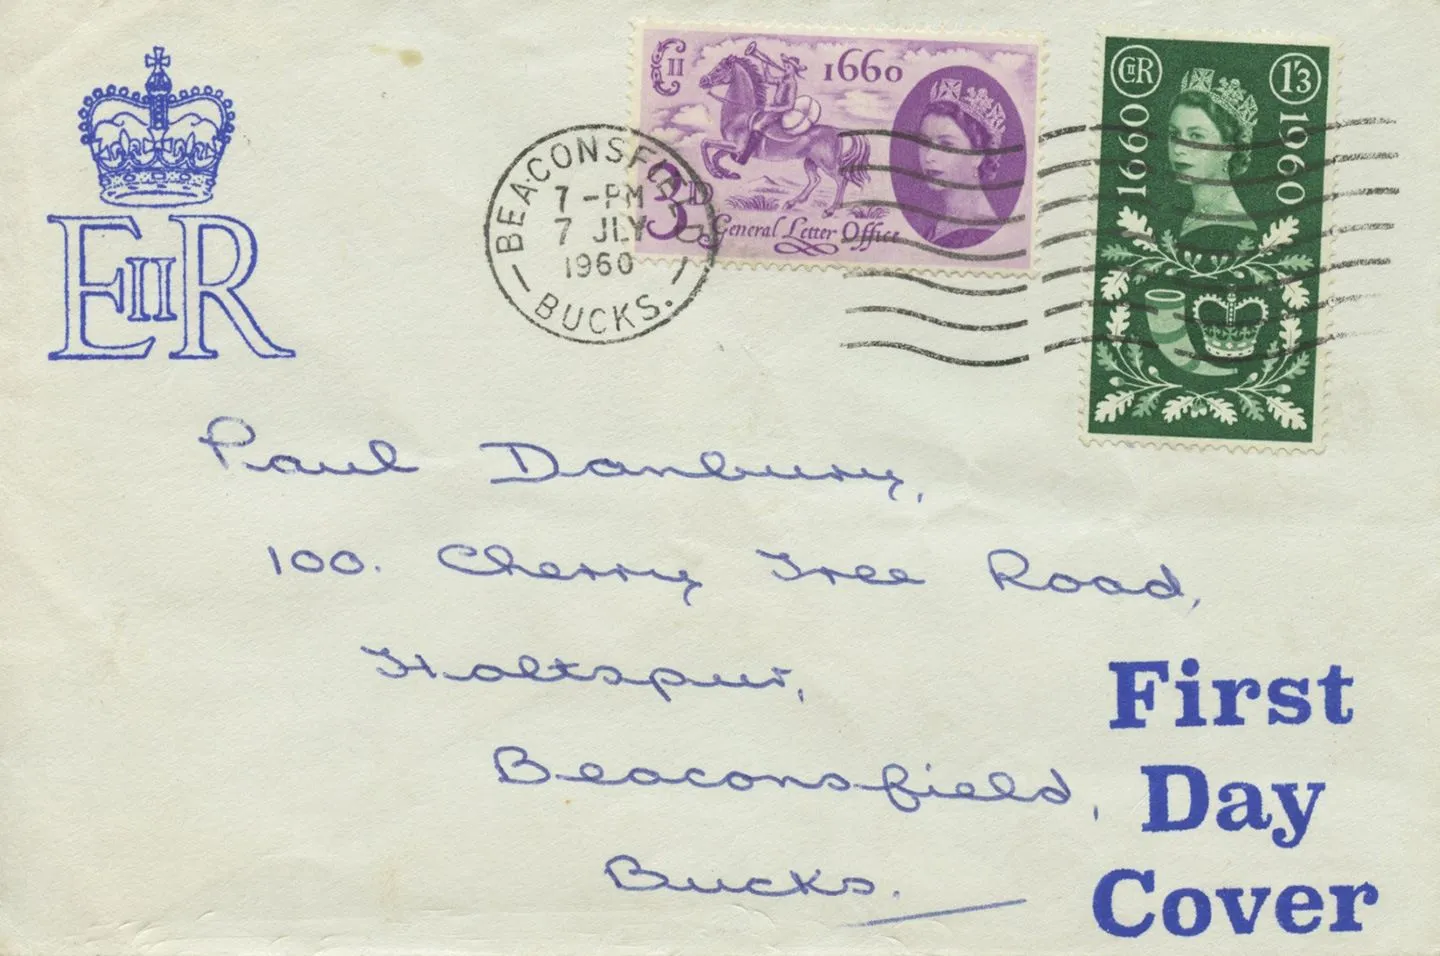 E II R
E II R
1660
3D
General Letter Office
E II R
1'3
1660
1960
BEACONSFIELD
7 - PM
7 JLY
1960
BUCKS.
Paul Danbury,
100. Cherry Tree Road,
Holtspur,
Beaconsfield,
Bucks.
First
Day
Cover